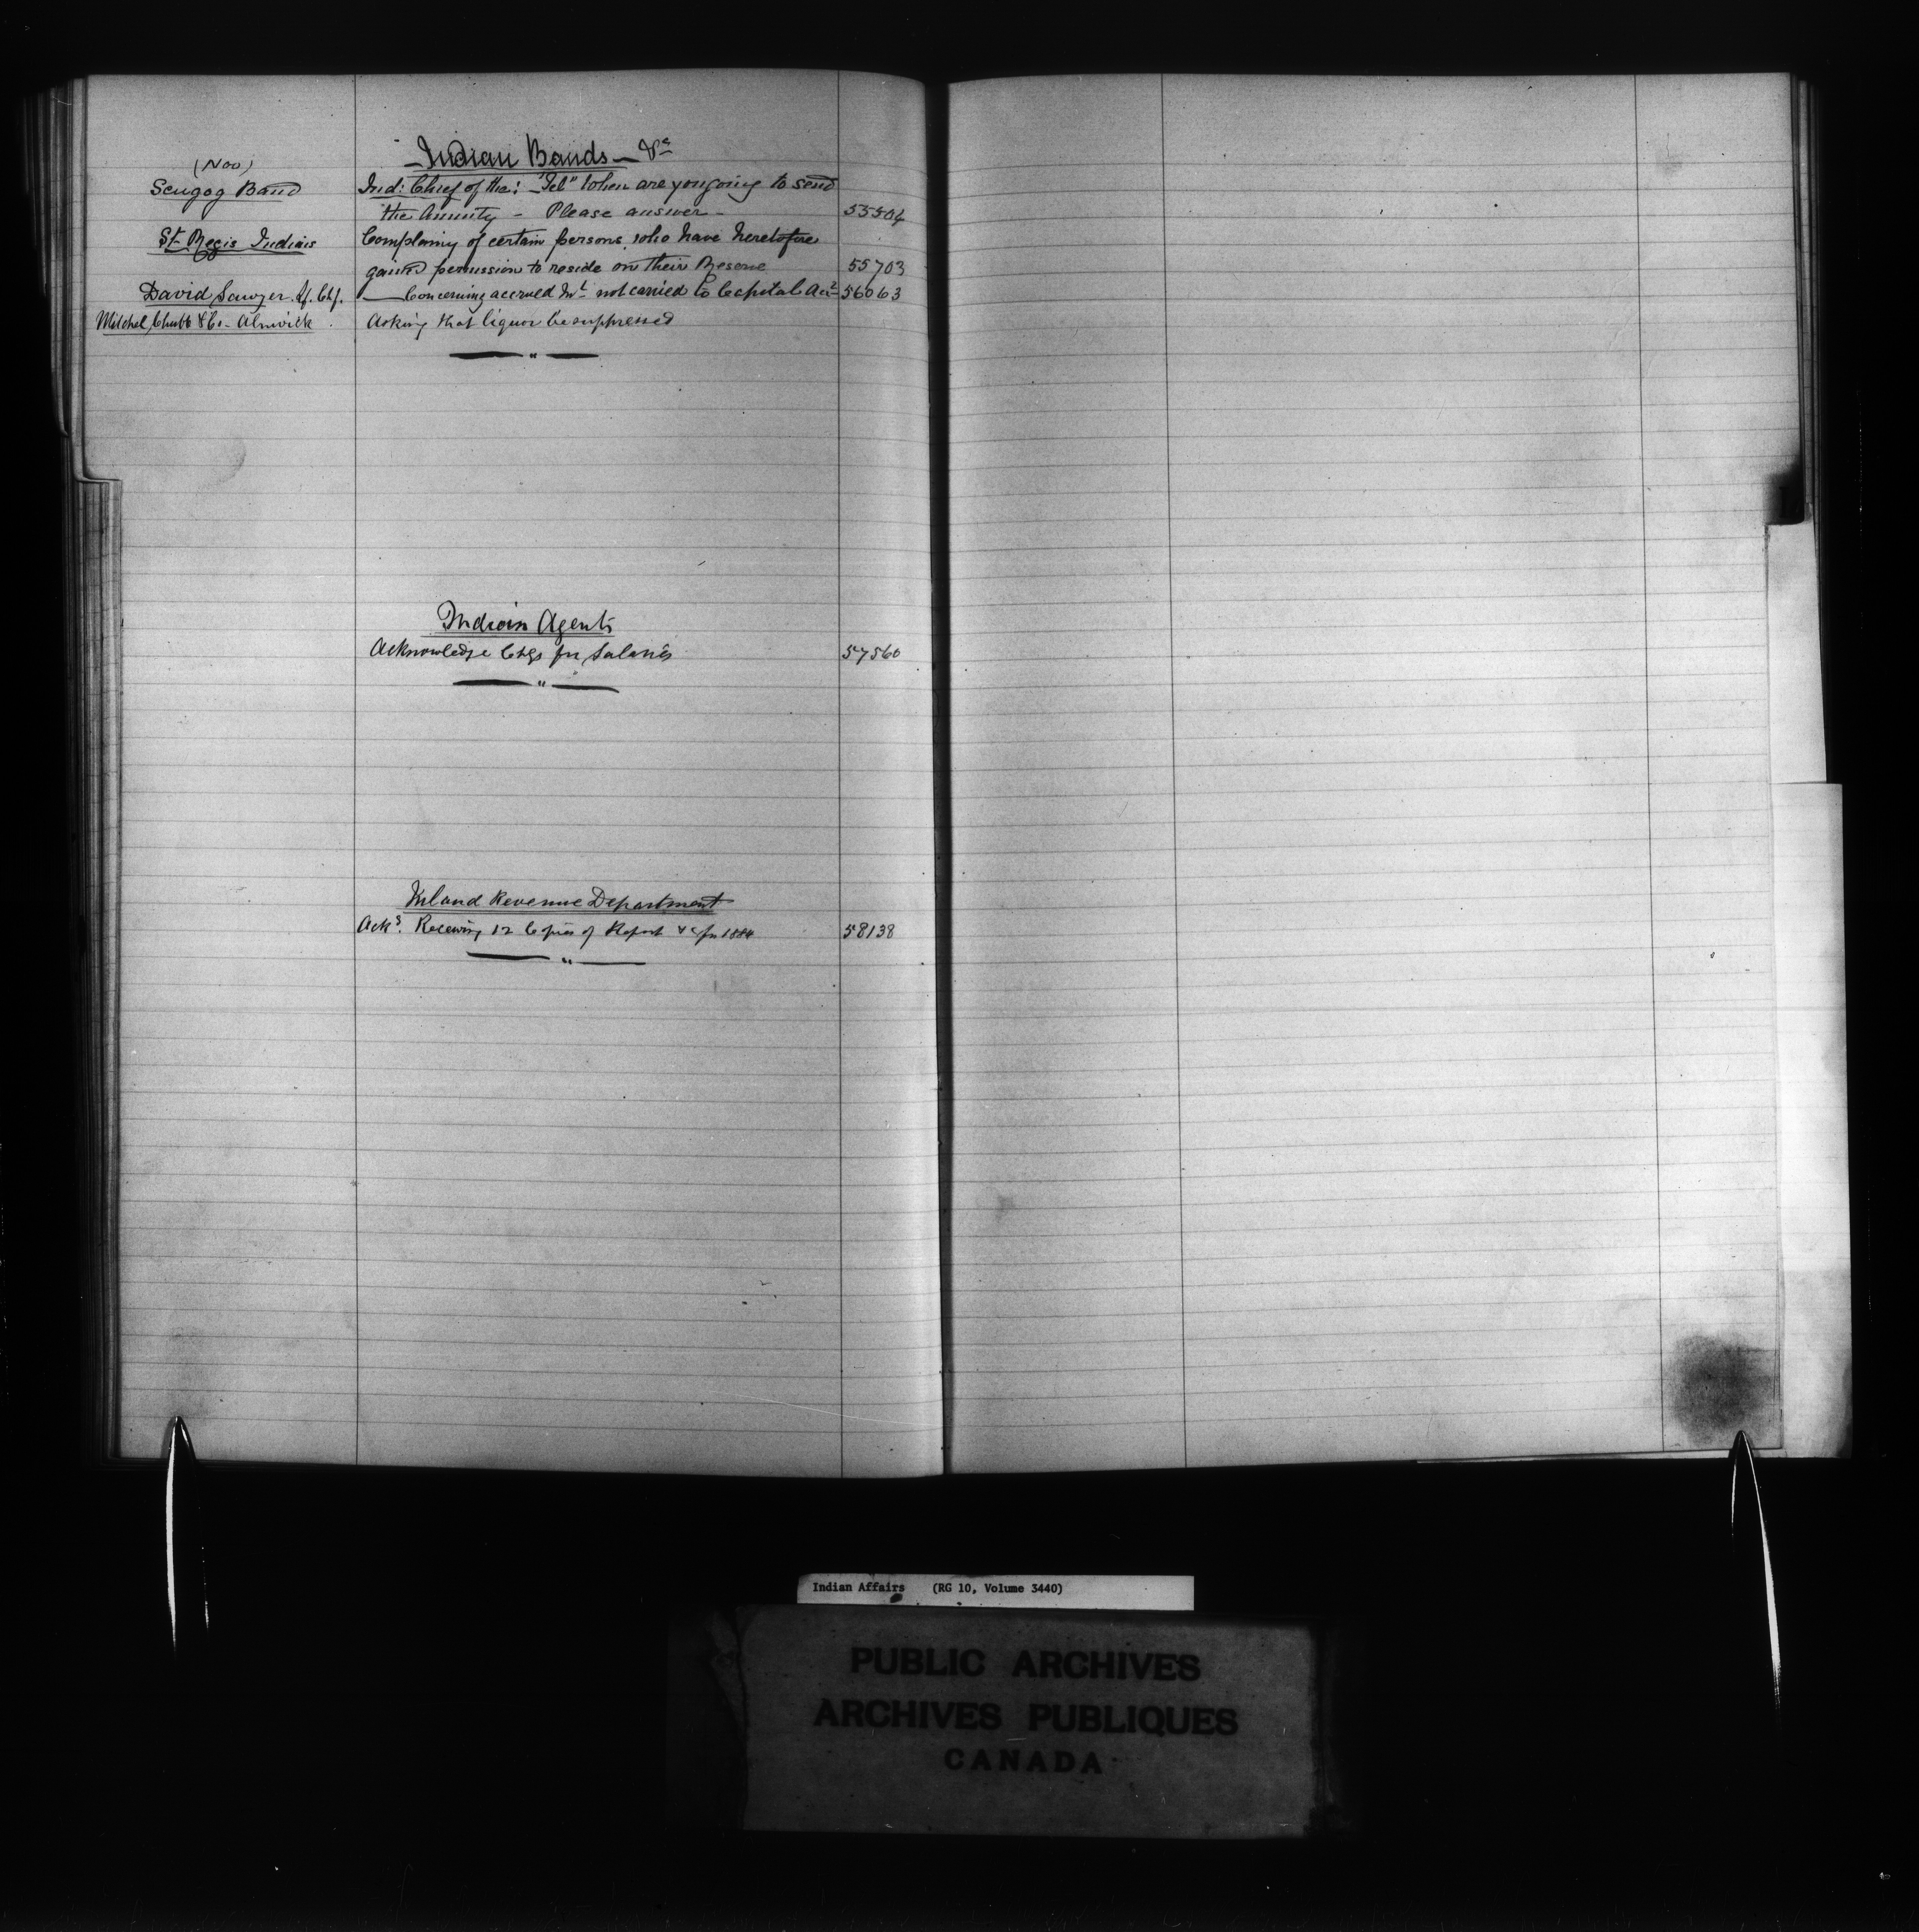 Indian Bands — &c
(Noo)
Scugog Band Ind: Chief of the: "Tel" When are you going to send
the Annuity - Please answer - 55504
St Regis Indians Complaing of certain persons, who have heretofore
gained permission to reside on their Reserve 55703
David Sawyer. Chf. Concerning accrued Int not carried to Capital Acct 56063
Mitchel Chubb & Co - Alnwick. Asking that liquor be suppressed
Indian Agents
Acknowledge Chqs for Salaries 57560
Inland Revenue Department
Acks. Receiving 12 Copies of Report &c for 1884 58138
Indian Affairs (RG 10, Volume 3440)
PUBLIC ARCHIVES
ARCHIVES PUBLIQUES
CANADA